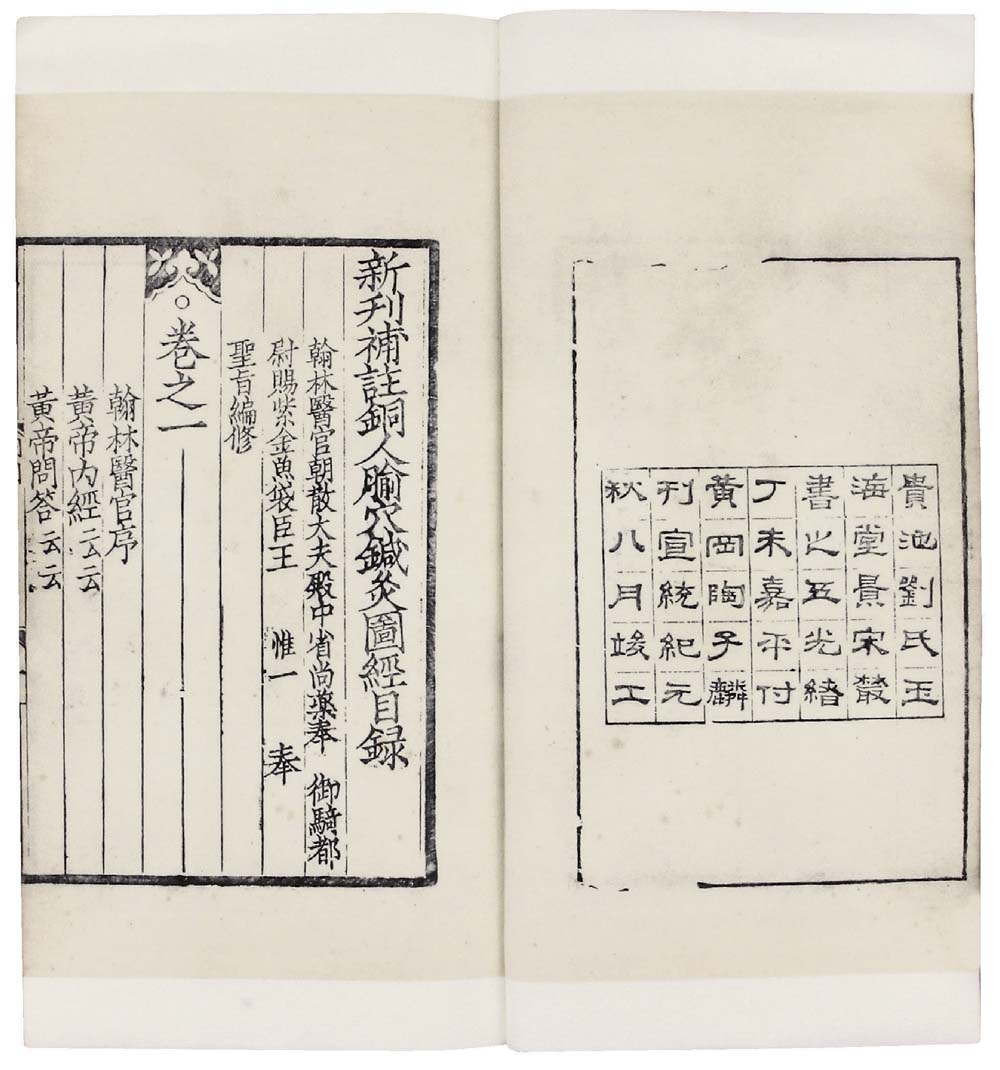 貴池劉氏玉
海堂景宋叢
書之五光緒
丁未嘉平付
黃岡陶子麟
刊宣統紀元
秋八月竣工
新刋補註銅人腧穴鍼灸圖經目録
翰林醫官朝散大夫殿中省尚藥奉 御騎都
尉賜紫金魚袋臣王 惟一 奉
聖旨編修
卷之一
翰林醫官序
黃帝內經云云
黃帝問答云云